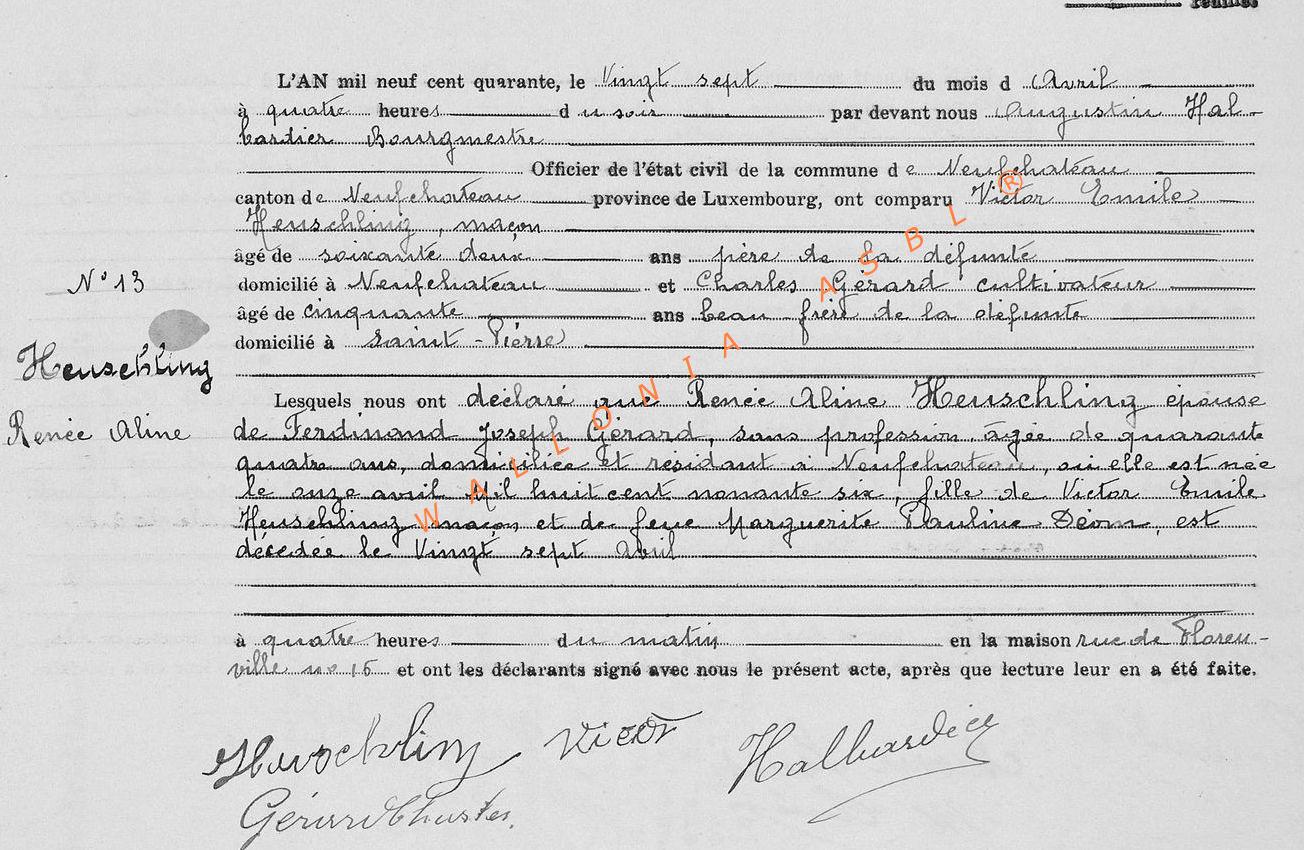 feuillet
L'AN mil neuf cent quarante, le Vingt sept du mois d Avril
à quatre heures d u soir par devant nous Augustin Hal-
bardier Bourgmestre
Officier de l'état civil de la commune d e Neufchateau
canton de Neufchateau province de Luxembourg, ont comparu Victor Emile
Heuschling, maçon
âgé de soixante deux ans père de la défunte
N° 13
domicilié à Neufchateau et Charles Gérard cultivateur
âgé de cinquante ans beau frère de la défunte
domicilié à Saint-Pierre
Heuschling
Renée Aline
Lesquels nous ont déclaré que Renée Aline Heuschling épouse
de Ferdinand Joseph Gérard, sans profession âgée de quarante
quatre ans, domiciliée et résidant à Neufchateau, où elle est née
le onze avril Mil huit cent nonante six, fille de Victor Emile
Heuschling maçon et de feue Marguerite Pauline Déom, est
décédée le Vingt sept Avril
à quatre heures du matin en la maison rue de Floren-
ville no 15 et ont les déclarants signé avec nous le présent acte, après que lecture leur en a été faite.
Heuschling Victor
Halbardier
Gérard Charles.
WALLONIA ASBL ®